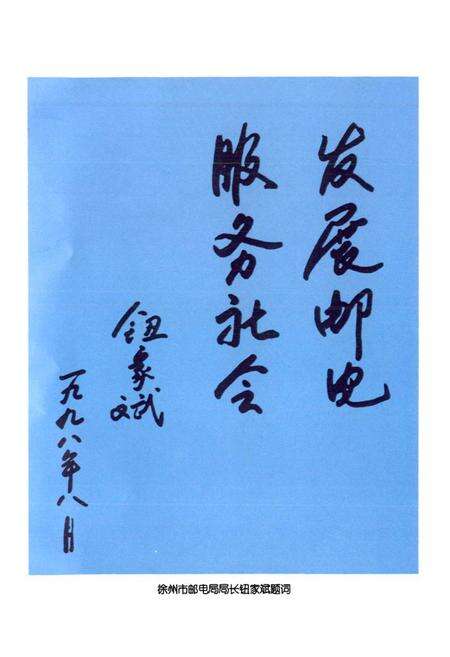 发展邮电
服务社会
钮家斌
一九九八年八月
徐州市邮电局局长钮家斌题词